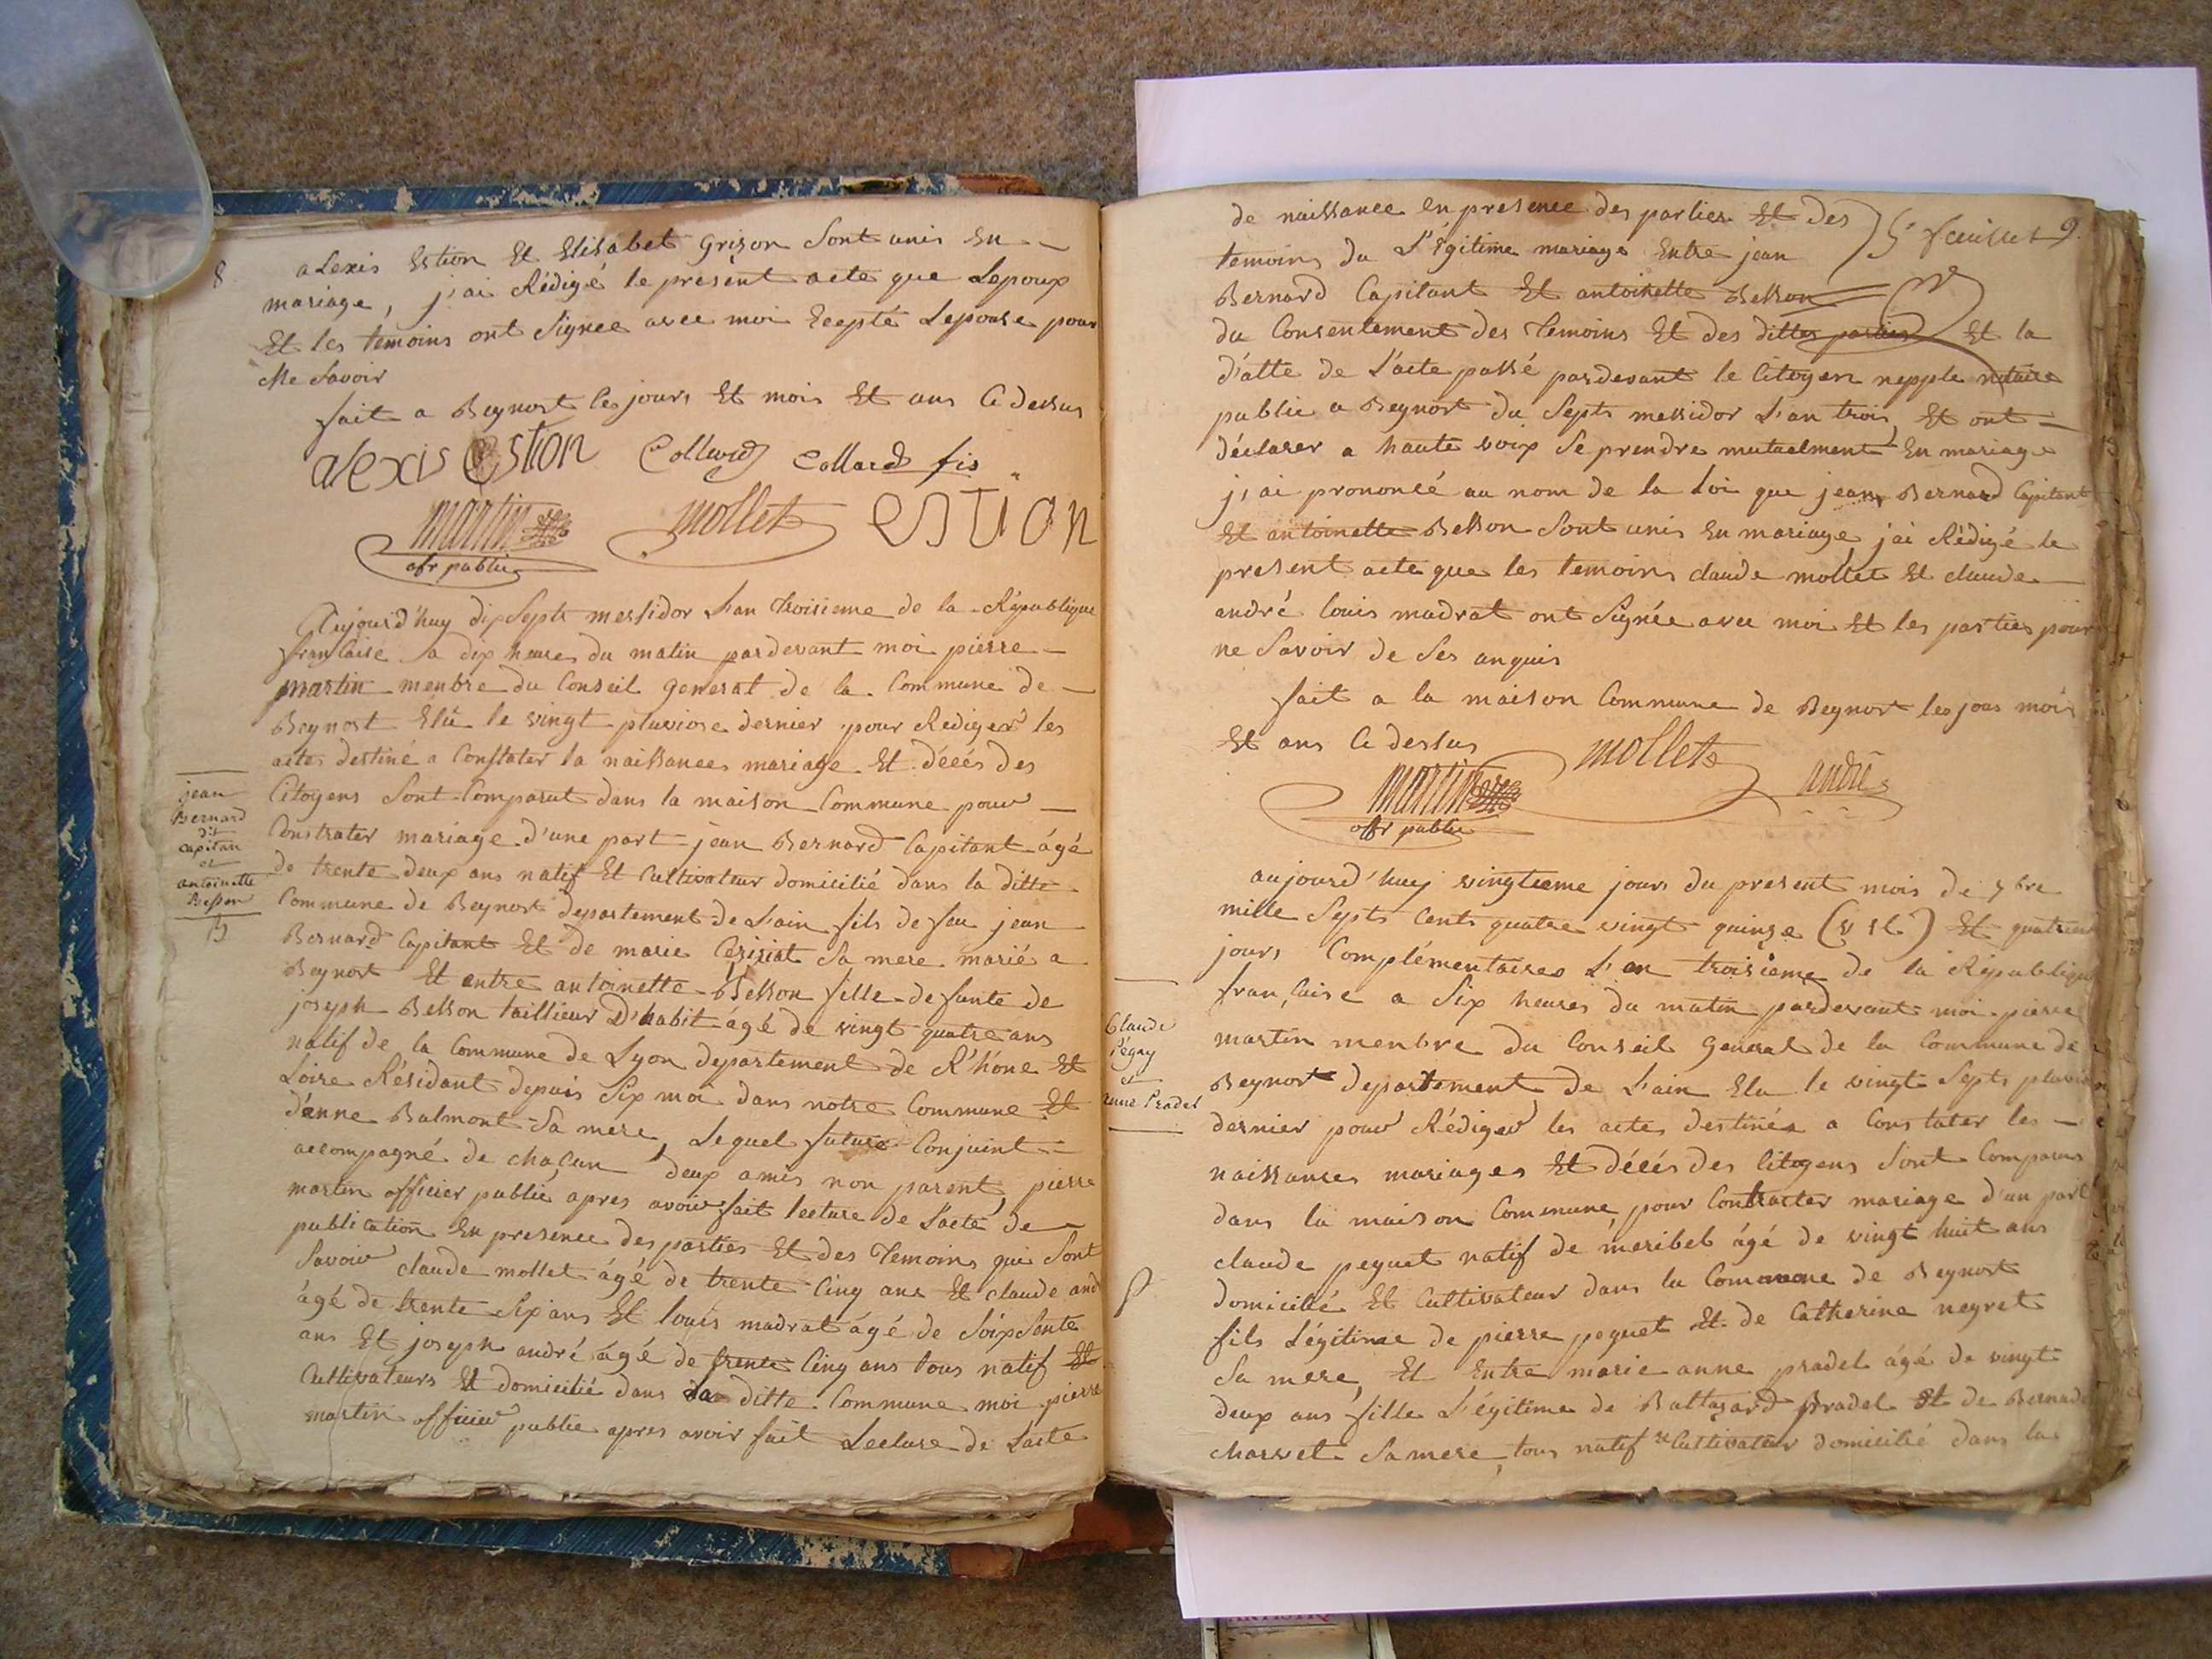 8
aLexis Estion Et Elisabet Grizon Sont unis En -
mariage, j'ai Rédigé le present acte que Lepoux
Et les temoins ont Signee avec moi Ecepté Lepouse pour
Me Savoir
fait a Beynost les jours Et mois Et ans Ci dessus
alexis Estion Collard Collard fis
martin mollet ESTION
ofr public
Aujourd'huy dix Septs messidor L'an Troisieme de la République
francaise a dix heures du matin pardevant moi pierre -
martin menbre du Conseil general de la Commune de -
Beynost Elû le vingt pluviose dernier pour Rediger les
actes destiné a Constater la naissances mariage Et décés des
Citoyens Sont Comparut dans la maison Commune pour -
Constrater mariage d'une part jean Bernard Capitant âgé
de trente deux ans natif Et Cultivateur domicilié dans la ditte
Commune de Beynost departement de L'ain fils de feu jean
Bernard Capitant Et de marie Cesisiat Sa mere marié a
Beynost Et entre antoinette Besson fille de funte de
joseph Besson taillieur D'habit âgé de vingt quatre ans
natif de la Commune de Lyon departement de R'hône Et
Loire Résidant depuis Six moi dans notre Commune Et
d'anne Balmont Sa mere, Lequel future Conjoint -
accompagné de chaçun deux amis non parent, pierre
martin officier public apres avoir fait lecture de L'acte de
publication En presence des parties Et des Temoins qui Sont
Savoir claude mollet âgé de trente Cinq ans Et claude and
âgé de trente Six ans Et louis madrat âgé de Soixsente
ans Et joseph andré âgé de trente Cinq ans tous natif Et
Cultivateurs Et domicilié dans la ditte Commune moi pierre
martin officier public apres avoir fait Lecture de L'acte
jean
Bernard
dit
capitan
et
antoinette
Besson
de naissance En presence des parties Et des
temoins du L'égitime mariage Entre jean
5e feuillet 9.
Bernard Capitant Et antoinette Besson
du Consentement des Temoins Et des dittes parties Et la
d'atte de L'acte passé pardevant le Citoyen nepple notaire
public a Beynost du Septs messidor L'an trois, Et ont -
déclarer a haute voix Se prendre mutuelment En mariage
j'ai prononcé au nom de la Loi que jean Bernard Capitant
Et antoinette Besson Sont unis En mariage, j'ai Rédigé le
present acte que les temoins claude mollet Et claude
andré louis madrat ont Signée avec moi Et les parties pour
ne Savoir de Ses anquis
fait a la maison Commune de Beynost les jous mois
Et ans Ci dessus
martin mollet andre
ofr public
aujourd'huy vingtieme jours du present mois de 7bre
mille Septs Cents quatre vingt quinze (v st.) Et quatrieme
jours Complémentaires L'an troisieme de la République
française a Six heures du matin pardevant moi pierre
martin menbre du Conseil General de la Commune de
Beynost departement de L'ain Elu le vingt Septs pluvio
dernier pour Rédiger les actes destinés a Constater les -
naissances mariages Et décés des Citoyens Sont Comparus
dans la maison Commune, pour Contracter mariage d'un part
claude peguet natif de meribel âgé de vingt huit ans
domicilié Et Cultivateur dans la Commune de Beynost
fils Légitime de pierre peguet Et de Catherine negret
Sa mere, Et Entre marie anne pradel âgé de vingt
deux ans fille L'égitime de Baltazard pradel Et de Bernade
charvet Sa mere, tous natif et Cultivateur domicilié dans la
Claude
Pégay
et
anne Pradel